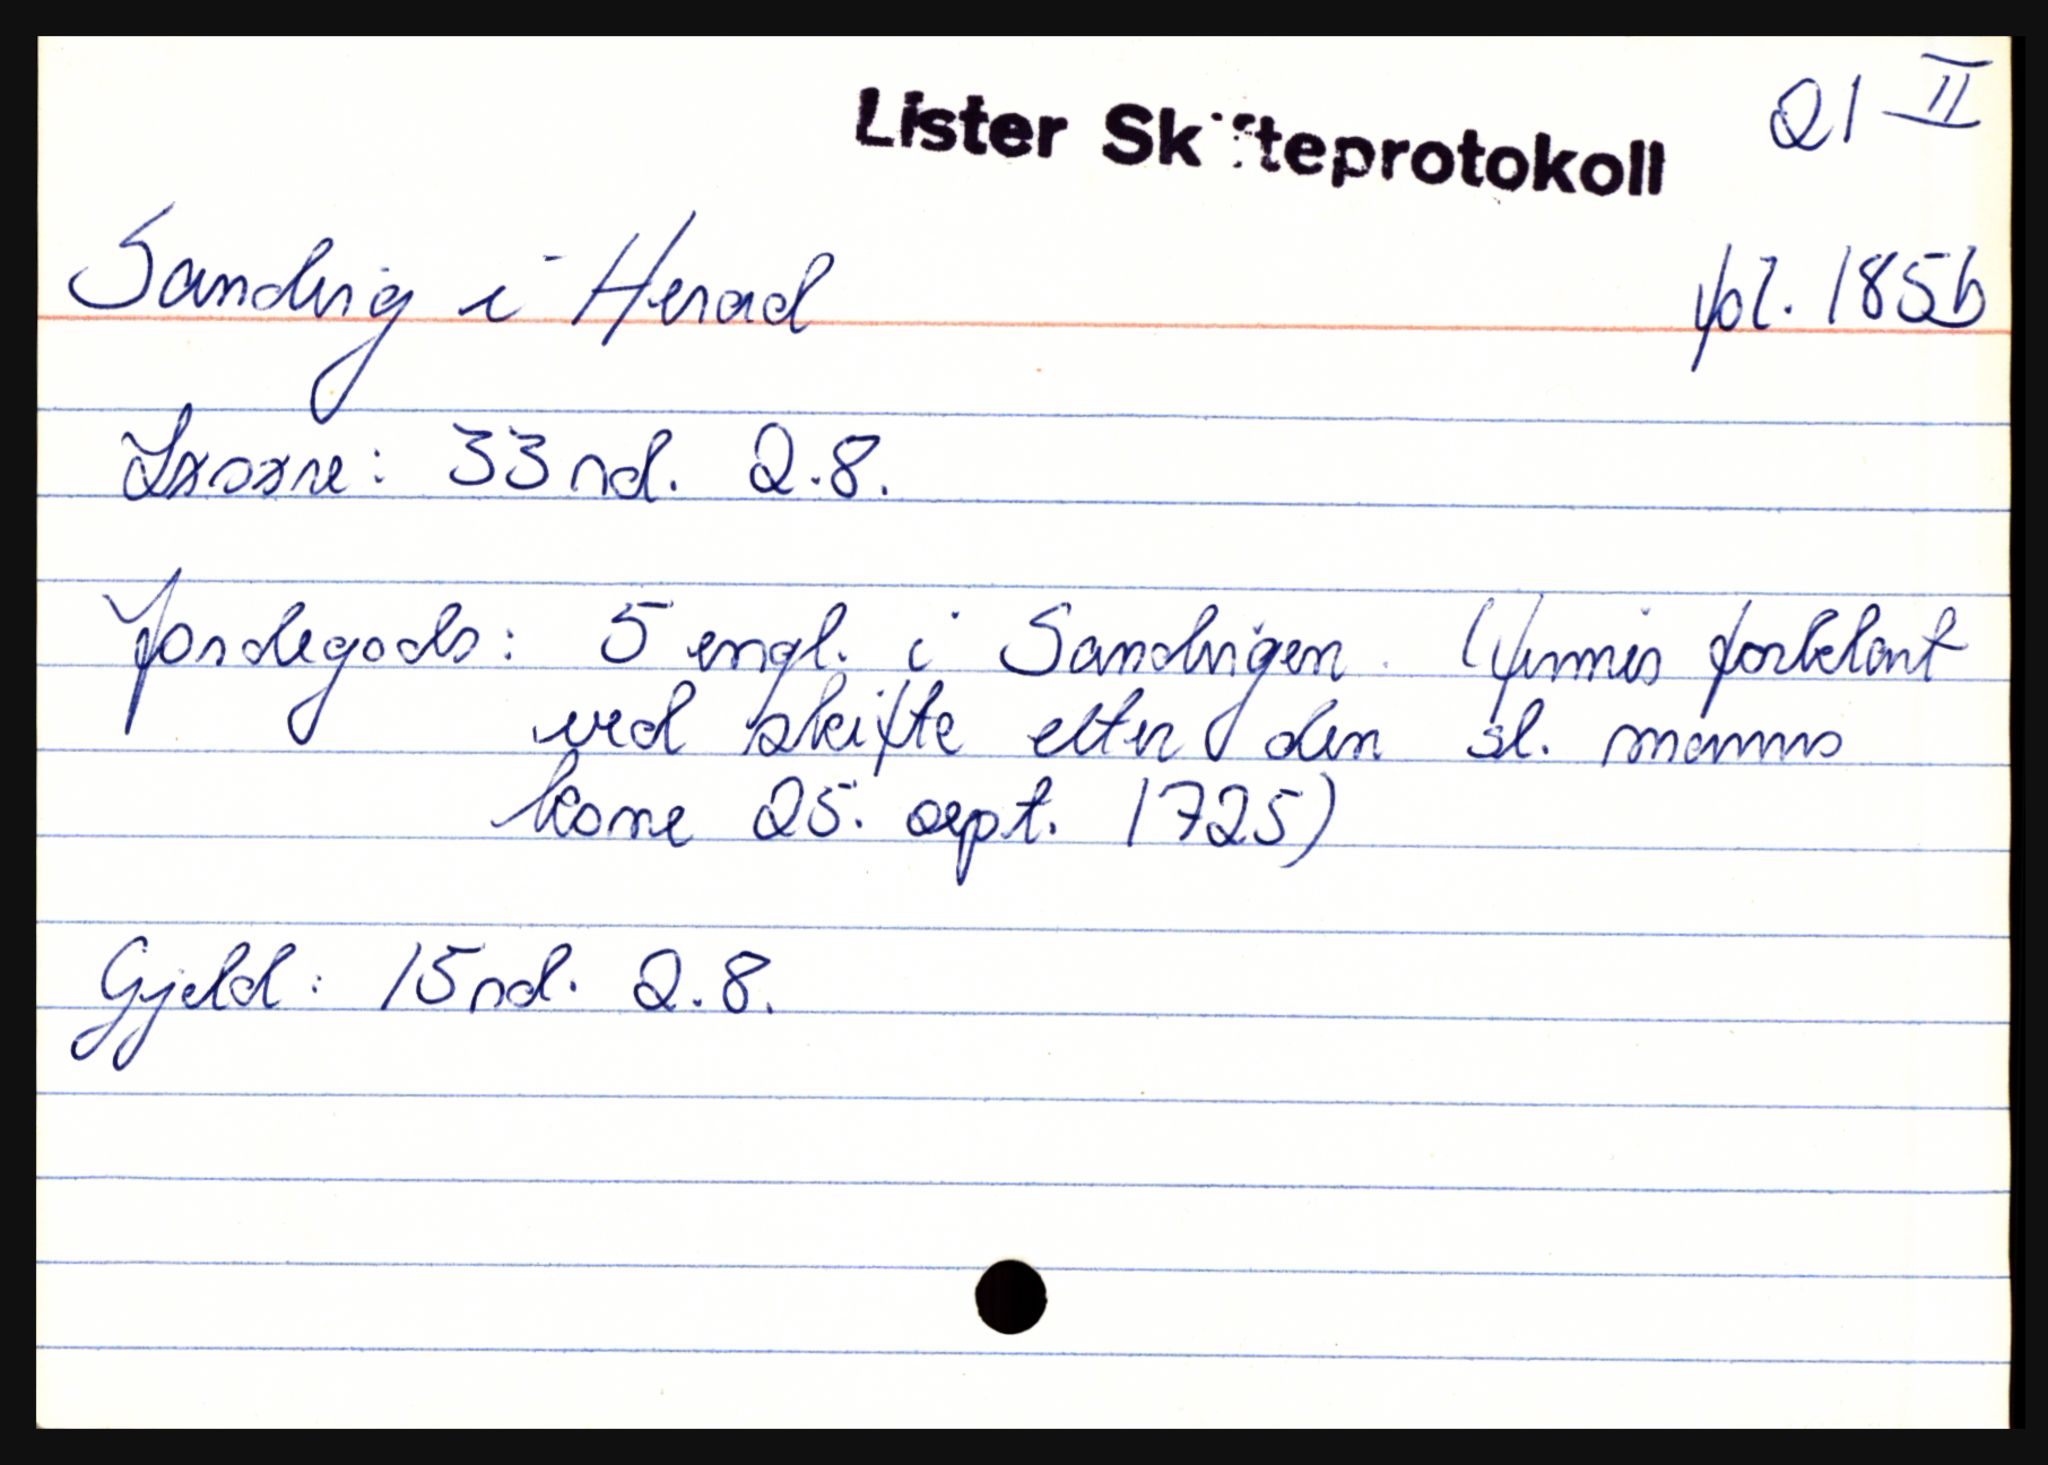 Lister Skifteprotokoll
21 II
Sandvig i Herad fol. 185b
Løsøre: 33 rd. 2.8.
Jordegods: 5 engl. i Sandvigen. (finnis forklart
ved skifte etter den sl. manns
kone 25. sept. 1725)
Gjeld: 15 rd. 2.8.